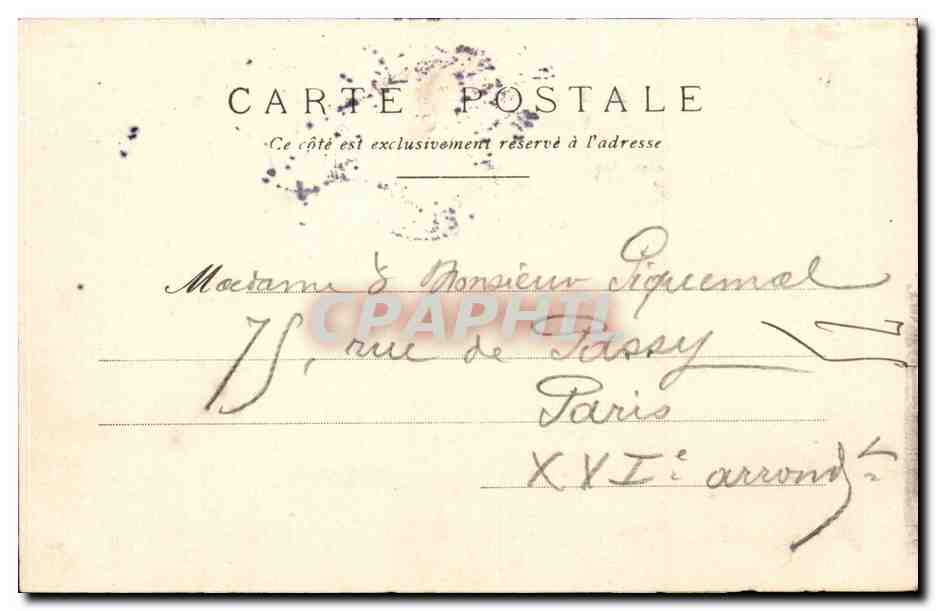 CARTE POSTALE
Ce côté est exclusivement réservé à l'adresse
Madame & Monsieur Piquemal
CPAPHIL
75, rue de Passy
Paris
XXIe arrondt